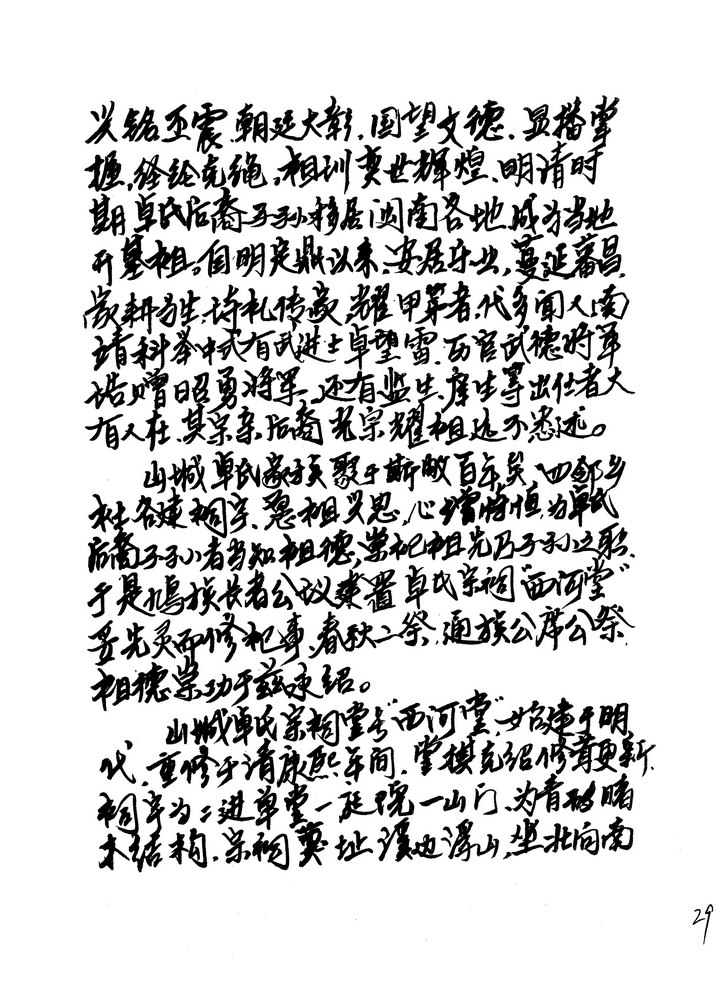 兴铭丕震、朝廷大彰、国望文德、显播掌
握,经纶克绳,祖训奕世辉煌、明清时
期卓氏后裔子孙移居闽南各地,成为当地
开基祖。自明定鼎以来、安居乐业,蔓延蕃昌、
家耕为生,诗礼传家,耀甲第者,代多闻人,南
靖科举中式有武进士卓望雷,历官武德将军
诰赠昭勇将军,还有监生、庠生等出仕者大
有人在、其宗亲后裔光宗耀祖迄不悉述。
山城卓氏家族聚于斯数百年矣、四邻乡
社各建祠宇、慕祖兴思,心增惭恒,为卓氏
后裔子孙者当知祖德,崇祀祖先乃子孙之职、
于是鸠族长者公议建置卓氏宗祠“西河堂”
妥先灵而修祀事、春秋二祭,通族公席公祭,
祖德崇功于兹永绍。
山城卓氏宗祠堂号“西河堂”始建于明
代,重修于清康熙年间,堂模克绍修葺更新,
祠宇为二进单堂一庭院一山门、为青砖
木结构,宗祠奠址溪边浮山,坐北向南
29